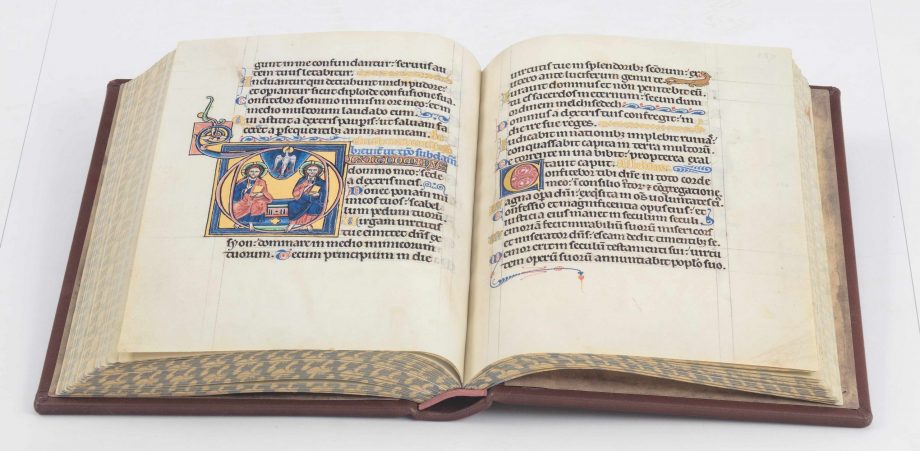 gunt in me confundantur: seruus au
tem tuus letabitur.
nduantur qui detrahunt michi pudore:
et opiantur sicut diploide confusione sua.
onfitebor domino nimis in ore meo: et in
medio multorum laudabo eum.
ui astitit a dextris paupis: ut saluam fa
ceret a psequentib; animam meam.
domino meo: sede
a dextris meis.
Donec ponam ini
micos tuos: scabel
lum pedum tuorū.
irgam uirtutis
tue emittet dn̄s ex
syon: dominare in medio inimicorum
tuorum. Tecum principium in die
uirtutis tue in splendorib; scōrum: ex
utero ante luciferum genui te.
urauit dominus et non penitebit eū:
tu es sacerdos in eternum: secundum
ordinem melchisedech.
ominus a dextris tuis: confregit in
die ire sue reges.
udicabit in nationib; implebit ruinas:
conquassabit capita in terra multorū.
e torrente in uia bibit: propterea exal
tauit caput.
Confitebor tibi dn̄e in toto corde
meo: consilio
agna opera dn̄i: exqsita in om̄s uoluntates ei;
onfessio et magnificentia opus eius: et
iusticia eius manet in seculum seculi.
emoriā fecit mirabiliū suorū misericors
et miserator dn̄s: escam dedit timentib; se.
emor erit in seculū testamenti sui: uirtu
tem operū suorū annuntiabit poplo suo.